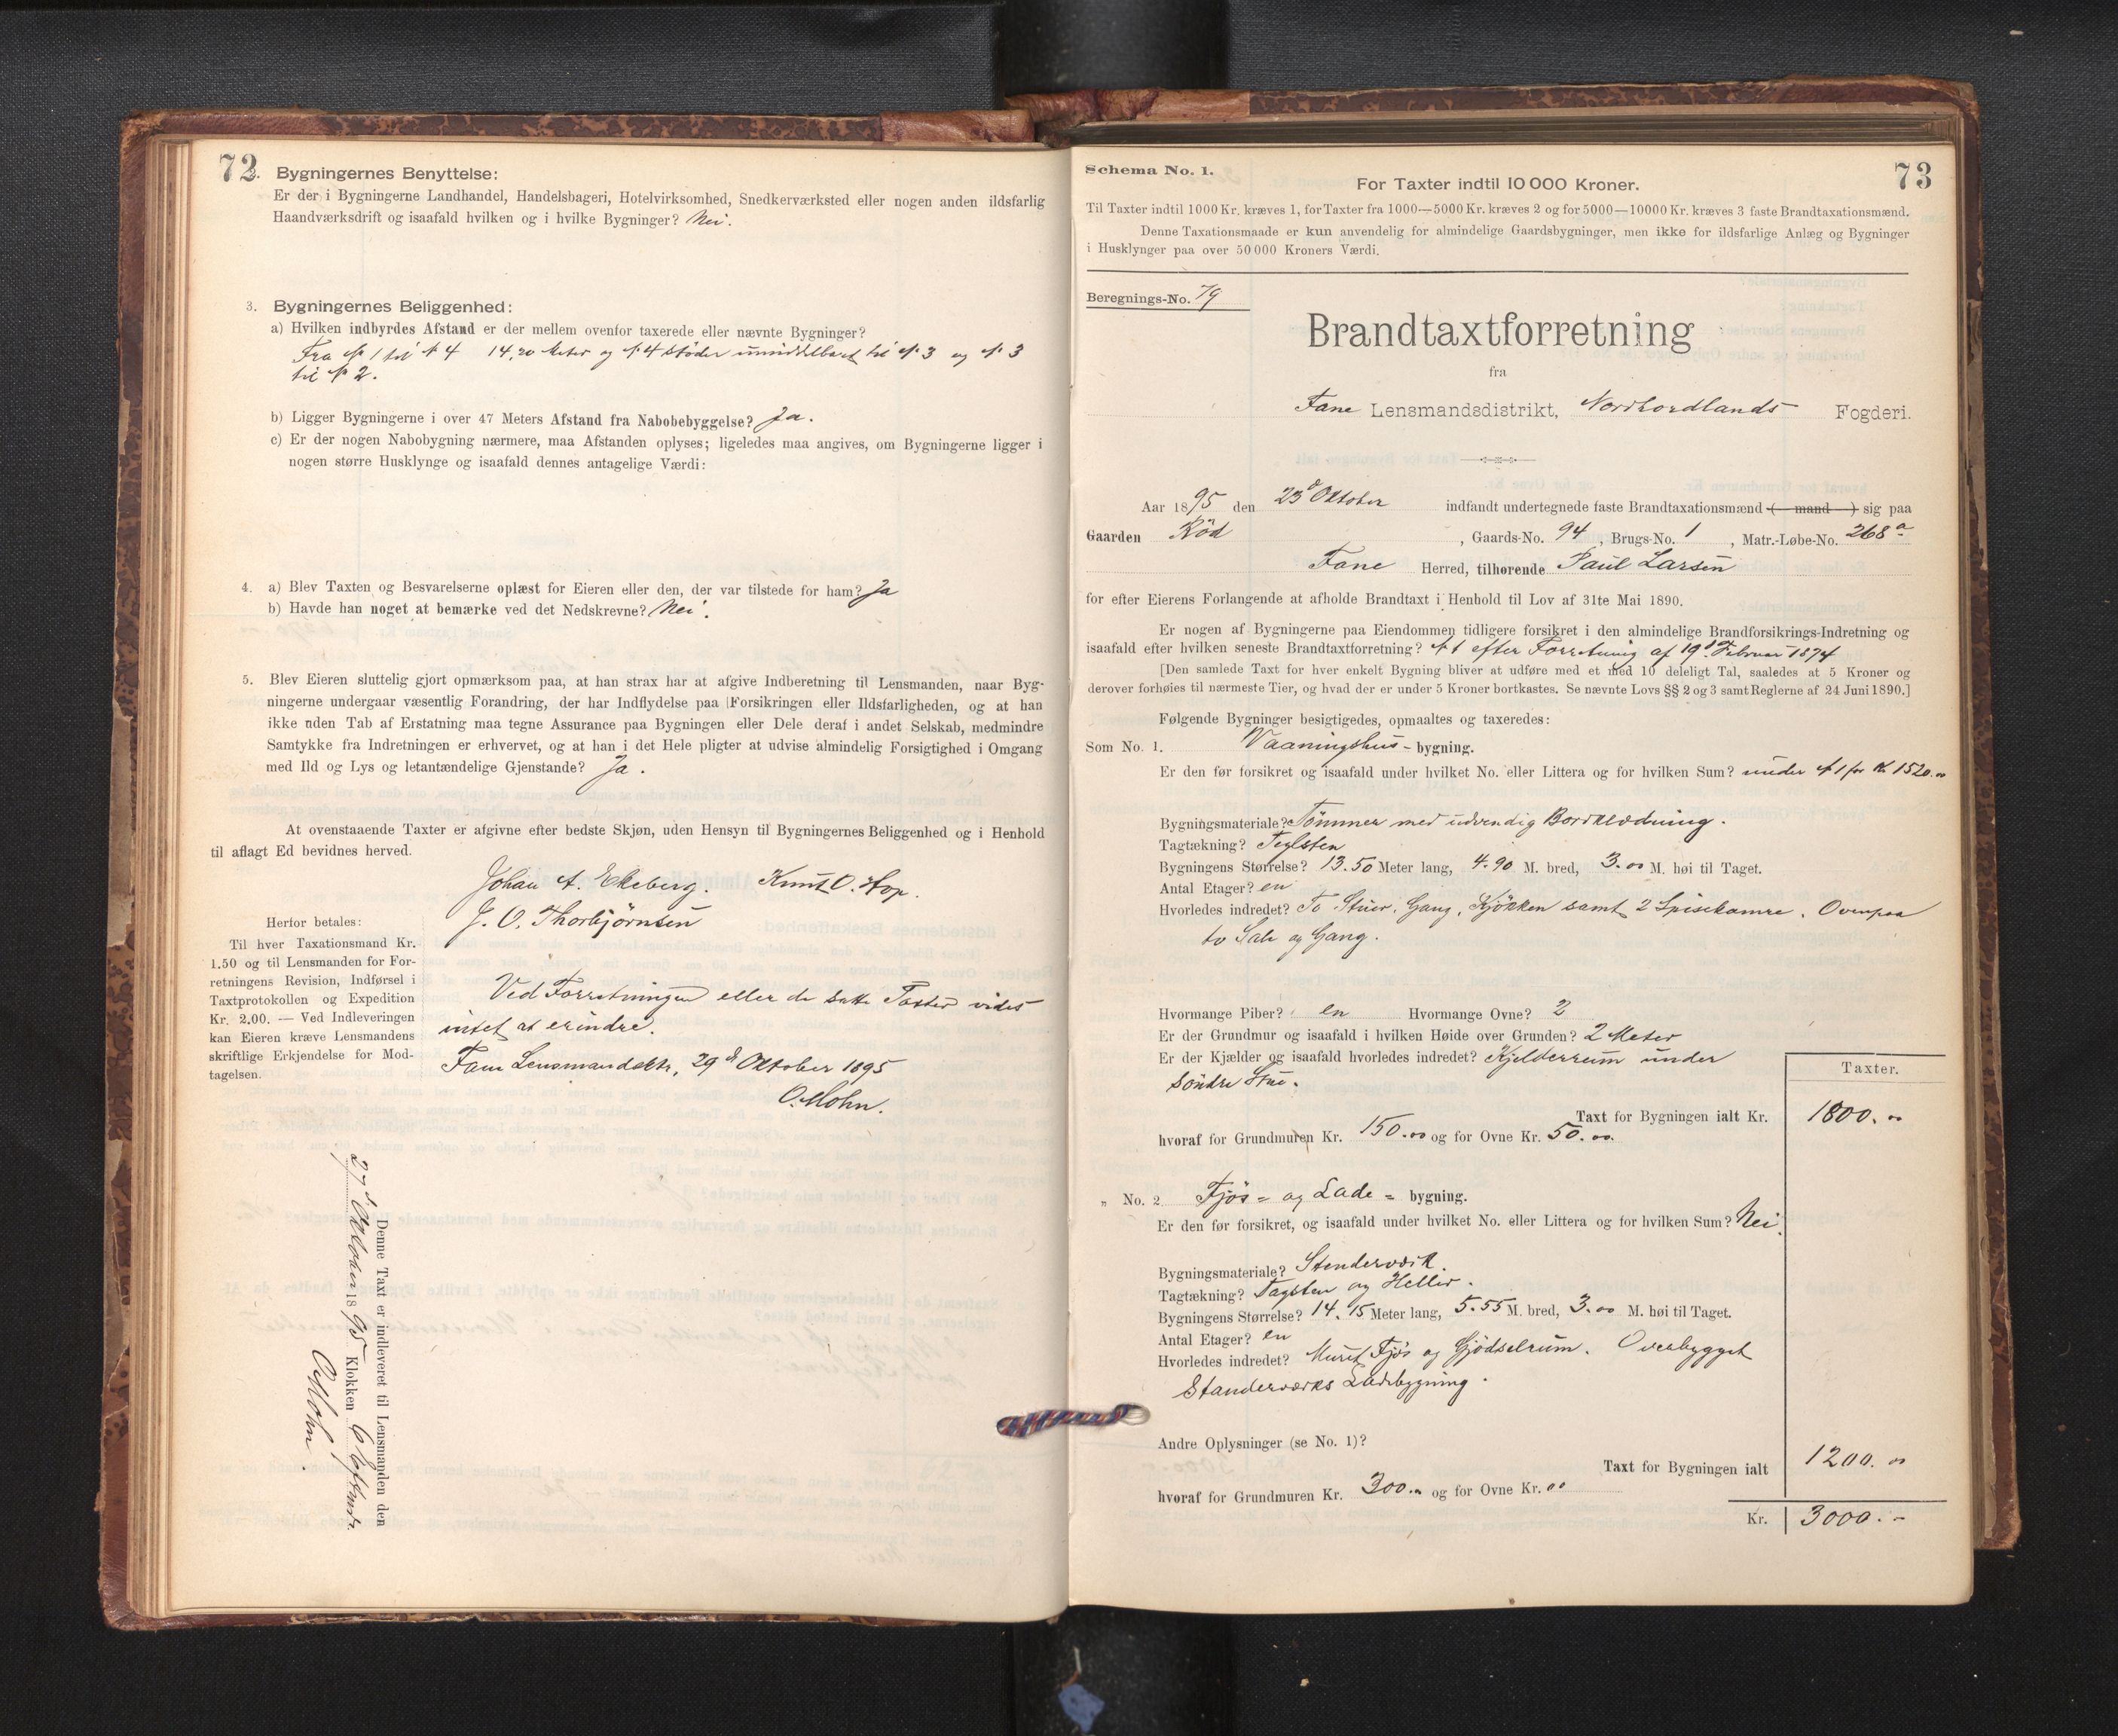 72.
Bygningernes Benyttelse:
Er der i Bygningerne Landhandel, Handelsbageri, Hotelvirksomhed, Snedkerværksted eller nogen anden ildsfarlig
Haandværksdrift og isaafald hvilken og i hvilke Bygninger? Nei.
3. Bygningernes Beliggenhed:
a) Hvilken indbyrdes Afstand er der mellem ovenfor taxerede eller nævnte Bygninger?
Fra № 1 til № 4 14,20 Meter og № 4 støder umiddelbart til № 3 og № 3
til № 2.
b) Ligger Bygningerne i over 47 Meters Afstand fra Nabobebyggelse? Ja.
c) Er der nogen Nabobygning nærmere, maa Afstanden oplyses; ligeledes maa angives, om Bygningerne ligger i
nogen større Husklynge og isaafald dennes antagelige Værdi:
4. a) Blev Taxten og Besvarelserne oplæst for Eieren eller den, der var tilstede for ham? Ja
b) Havde han noget at bemærke ved det Nedskrevne? Nei.
5. Blev Eieren sluttelig gjort opmærksom paa, at han strax har at afgive Indberetning til Lensmanden, naar Byg-
ningerne undergaar væsentlig Forandring, der har Indflydelse paa Forsikringen eller Ildsfarligheden, og at han
ikke uden Tab af Erstatning maa tegne Assurance paa Bygningen eller Dele deraf i andet Selskab, medmindre
Samtykke fra Indretningen er erhvervet, og at han i det Hele pligter at udvise almindelig Forsigtighed i Omgang
med Ild og Lys og letantændelige Gjenstande? Ja.
At ovenstaaende Taxter er afgivne efter bedste Skjøn, uden Hensyn til Bygningernes Beliggenhed og i Henhold
til aflagt Ed bevidnes herved.
Johan A. Ekeberg. Knut O. Hop.
J. O. Thorbjörnsen
Herfor betales:
Til hver Taxationsmand Kr.
1.50 og til Lensmanden for For-
retningens Revision, Indførsel i
Taxtprotokollen og Expedition
Kr. 2.00. — Ved Indleveringen
kan Eieren kræve Lensmandens
skriftlige Erkjendelse for Mod-
tagelsen.
Ved Forretningen eller de satte Taxter vides
intet at erindre.
Fane Lensmandsktr, 29d Oktober 1895
O. Mohn.
Denne Taxt er indleveret til Lensmanden den
27d Oktober 1895 Klokken 6 Eftmdr.
O Mohn.
Schema No. 1.
73
For Taxter indtil 10 000 Kroner.
Til Taxter indtil 1000 Kr. kræves 1, for Taxter fra 1000—5000 Kr. kræves 2 og for 5000—10000 Kr. kræves 3 faste Brandtaxationsmænd.
Denne Taxationsmaade er kun anvendelig for almindelige Gaardsbygninger, men ikke for ildsfarlige Anlæg og Bygninger
i Husklynger paa over 50 000 Kroners Værdi.
Beregnings-No. 79
Brandtaxtforretning
fra
Fane Lensmandsdistrikt, Nordhordlands Fogderi.
Aar 1895 den 23d Oktober indfandt undertegnede faste Brandtaxationsmænd ( mand ) sig paa
Gaarden Röd , Gaards-No. 94 , Brugs-No. 1 , Matr.-Løbe-No. 268a
Fane Herred, tilhørende Paul Larsen
for efter Eierens Forlangende at afholde Brandtaxt i Henhold til Lov af 31te Mai 1890.
Er nogen af Bygningerne paa Eiendommen tidligere forsikret i den almindelige Brandforsikrings-Indretning og
isaafald efter hvilken seneste Brandtaxtforretning? № 1 efter Forretning af 19d Februar 1874
[Den samlede Taxt for hver enkelt Bygning bliver at udføre med et med 10 deleligt Tal, saaledes at 5 Kroner og
derover forhøies til nærmeste Tier, og hvad der er under 5 Kroner bortkastes. Se nævnte Lovs §§ 2 og 3 samt Reglerne af 24 Juni 1890.]
Følgende Bygninger besigtigedes, opmaaltes og taxeredes:
Som No. 1. Vaaningshus - bygning.
Er den før forsikret og isaafald under hvilket No. eller Littera og for hvilken Sum? under № 1 for Kr. 1520.00
Bygningsmateriale? Tömmer med udvendig Bordklædning.
Tagtækning? Teglsten
Bygningens Størrelse? 13.50 Meter lang, 4.90 M. bred, 3.00 M. høi til Taget.
Antal Etager? en
Hvorledes indredet? To Stuer, Gang, Kjökken samt 2 Spisekamre. Ovenpaa
to Sale og Gang.
Hvormange Piber? en Hvormange Ovne? 2
Er der Grundmur og isaafald i hvilken Høide over Grunden? 2 Meter
Er der Kjælder og isaafald hvorledes indredet? Kjelderrum under
Söndre Stue.
Taxter.
Taxt for Bygningen ialt Kr. 1800.00
hvoraf for Grundmuren Kr. 150.00 og for Ovne Kr. 50.00.
„ No. 2 Fjös - og Lade - bygning.
Er den før forsikret, og isaafald under hvilket No. eller Littera og for hvilken Sum? Nei.
Bygningsmateriale? Stenderværk.
Tagtækning? Tagsten og Heller.
Bygningens Størrelse? 14.15 Meter lang, 5.55 M. bred, 3.00 M. høi til Taget.
Antal Etager? en
Hvorledes indredet? Muret Fjös og Gjödselrum. Overbygget
Standerværks Ladebygning.
Andre Oplysninger (se No. 1)?
Taxt for Bygningen ialt 1200.00
hvoraf for Grundmuren Kr. 300.- og for Ovne Kr. 00
Kr. 3000.-